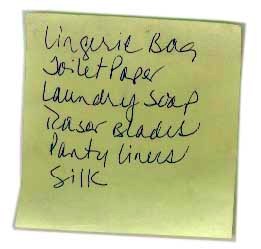 Lingerie Bag
Toilet Paper
Laundry Soap
Rasor Blades
Panty liners
Silk